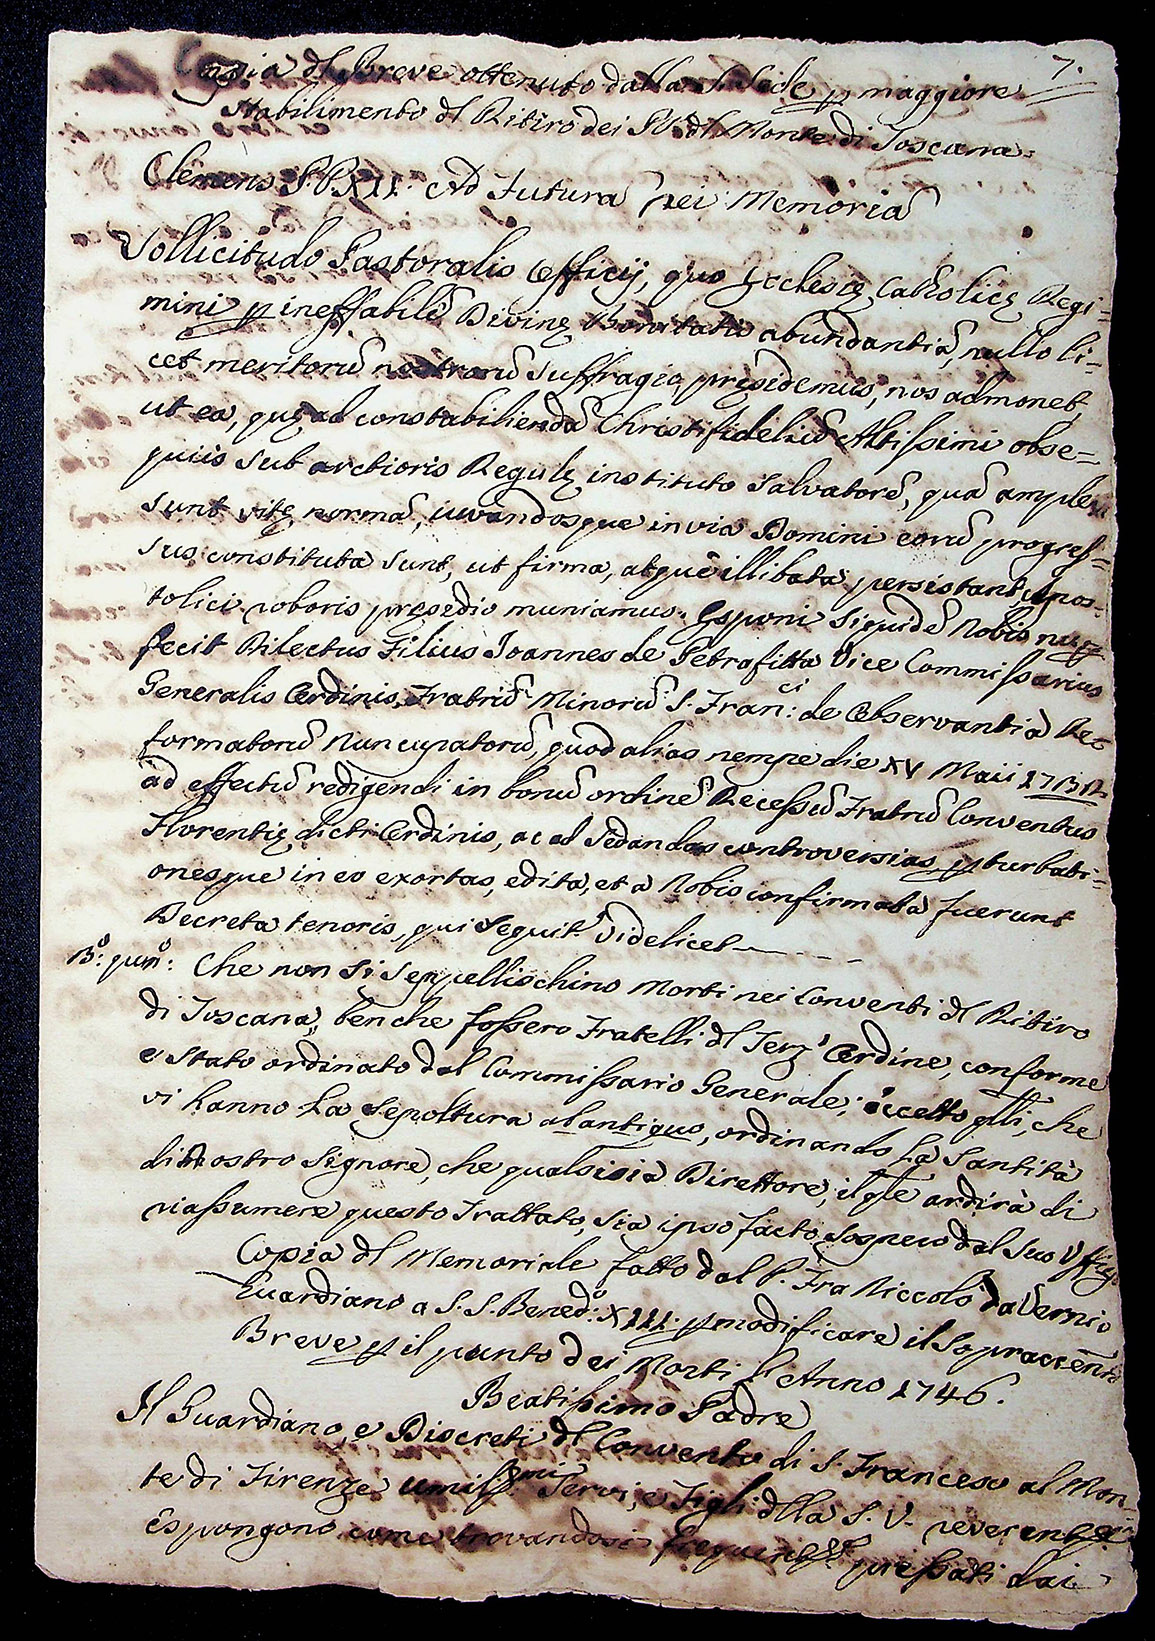 7.
Copia dl Breve ottenuto dalla S. Sede p maggiore
stabilimento dl Ritiro dei PP. dl Monte di Toscana.
Clemens P.P. XII. Ad futura rei memoria
Sollicitudo Pastoralis Officij, quo Ecclesię Catholicę Regi=
mini p ineffabilē Divinę Bonitatis abundantiā, nullo li=
cet meritorū nostrorū suffragio, pręsidemus, nos admonet,
ut ea, quę ad constabiliendā Christifideliū Altissimi obse=
quiis sub arctioris Regulę instituto salvatorē, quā amplexi
sunt vitę normā, iuvandosque in via Domini eorū progres=
sus constituta sunt, ut firma, atque illibata persistant Apos=
tolici roboris pręsidio muniamus. Exponi siquidē Nobis nup
fecit Dilectus Filius Joannes de Petrafitta Vice Commissarius
Generalis Ordinis Fratrū Minorū S. Fran:ci de Observantia Re=
formatorū Nuncupatorū, quod alias nempe die XV Maii 1731
ad effectū redigendi in bonū ordinē Recessū Fratrū Conventus
Florentię dicti Ordinis, ac ad sedandas controversias, pturbati=
onesque in eo exortas, edita, et a Nobis confirmata fuerunt
Decreta tenoris, qui sequit.r Videlicet
Che non si seppellischino Morti nei Conventi dl Ritiro
di Toscana, benche fossero Fratelli dl Terz.o Ordine, conforme
e stato ordinato dal Commissario Generale; eccetto qlli, che
vi hanno la sepoltura ab antiquo, ordinando la Santità
di Nostro Signore, che qualsisia Direttore, il qle ardirà di
riassumere questo Trattato, sia ipso facto sospeso dal suo Uffizio
Copia dl Memoriale fatto dal P. Fra Niccolò da Vernio
Guardiano a S. S. Bened.o XIII. p modificare il sopracen.to
Breve p il punto dei Morti l'Anno 1746.
Beatissimo Padre
Il Guardiano, e Discreti dl Convento di S. Francesco al Mon=
te di Firenze umiliss.mi Servi, e Figli dlla S. V. reverentem.te
Espongono come trovandosi frequentem.te pressati dai